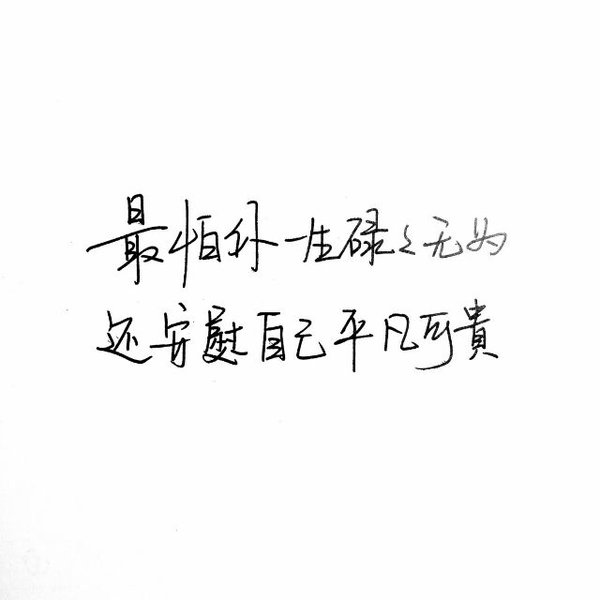 最怕你一生碌々无为
还安慰自己平凡可貴